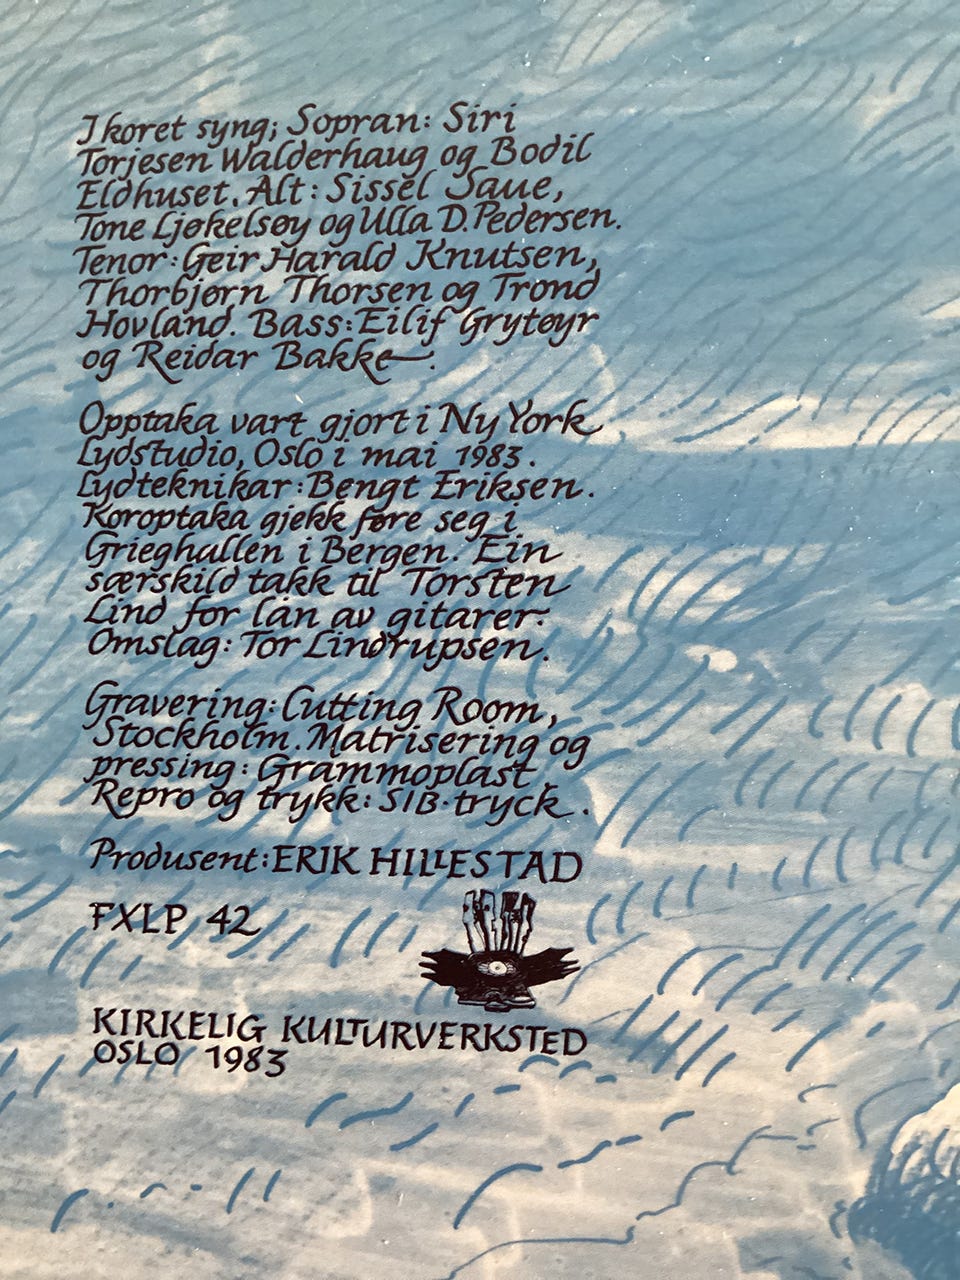 I koret syng; Sopran: Siri
Torjesen Walderhaug og Bodil
Eldhuset. Alt: Sissel Saue,
Tone Ljøkelsøy og Ulla D. Pedersen.
Tenor: Geir Harald Knutsen,
Thorbjørn Thorsen og Trond
Hovland. Bass: Eilif Grytøyr
og Reidar Bakke.
Opptaka vart gjort i Ny York
Lydstudio, Oslo i mai 1983.
Lydteknikar: Bengt Eriksen.
Koroptaka gjekk føre seg i
Grieghallen i Bergen. Ein
særskild takk til Torsten
Lind for lån av gitarer.
Omslag: Tor Lindrupsen.
Gravering: Cutting Room,
Stockholm. Matrisering og
pressing: Grammoplast.
Repro og trykk: SIB-tryck.
Produsent: ERIK HILLESTAD
FXLP 42
KIRKELIG KULTURVERKSTED
OSLO 1983